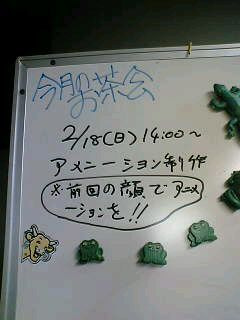 今月の
お茶会
2/18(日)14:00〜
アメニーション制作
※前回の顔でアニメ
ーションを!!